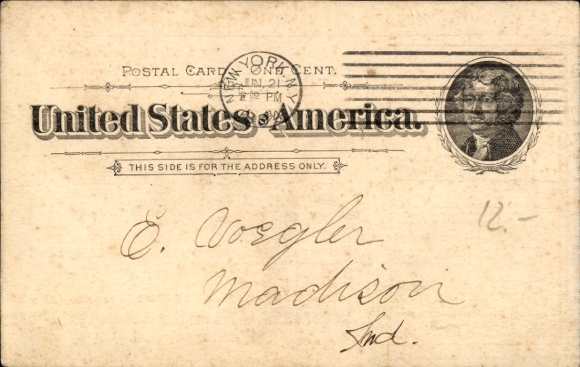 POSTAL CARD ONE CENT.
NEW YORK, N.Y.
JUN. 21
PM
United States America.
THIS SIDE IS FOR THE ADDRESS ONLY.
12.-
E. Voegler
Madison
Ind.